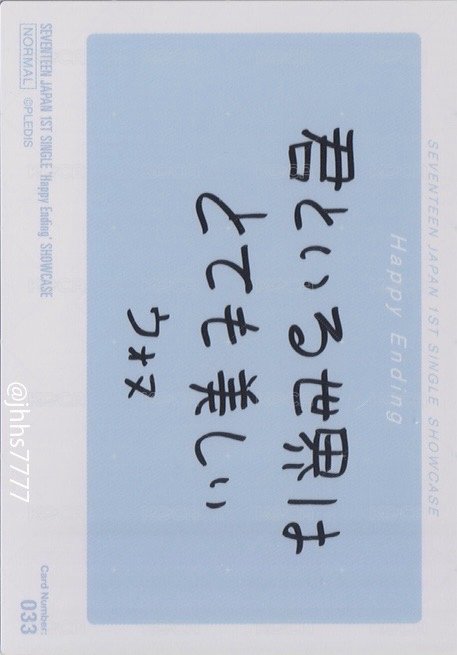 SEVENTEEN JAPAN 1ST SINGLE SHOWCASE
Happy Ending
君といる世界は
とても美しい
ウォヌ
SEVENTEEN JAPAN 1ST SINGLE 'Happy Ending' SHOWCASE
NORMAL ©PLEDIS
Card Number:
033
@jhhs7777